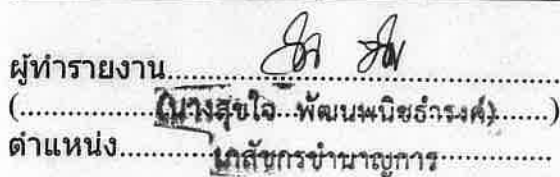 ผู้ทำรายงาน
(นางสุขใจ พัฒนพนิชธำรงค์)
ตำแหน่ง เภสัชกรชำนาญการ